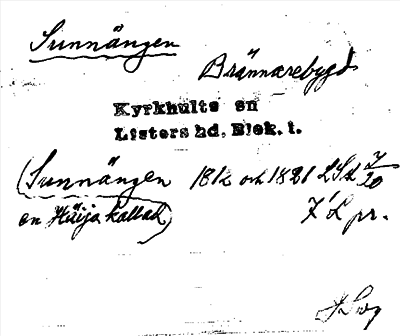 Sunnängen
Brännarebygd
Kyrkhults sn
Listers hd, Blek. l.
(Sunnängen 1812 och 1821 LSL 7/20
en Höija kallad)
7'L pr.